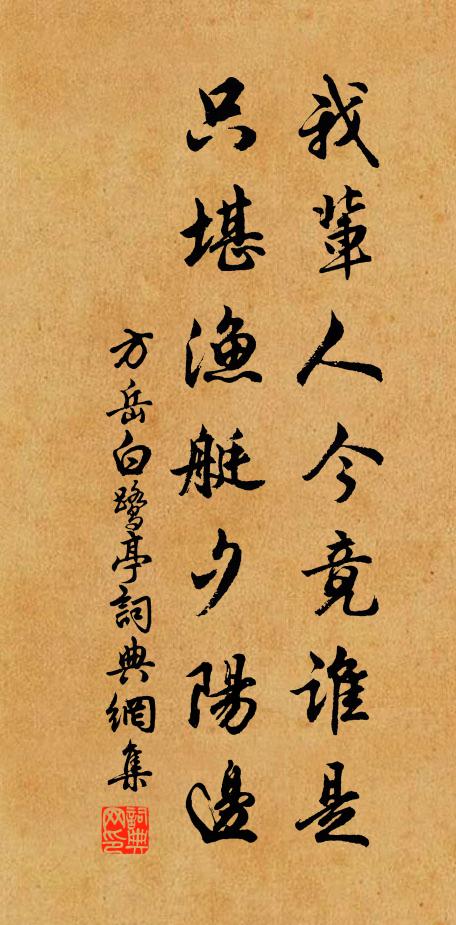 我輩人今竟誰是
只堪漁艇夕陽邊
方岳白鷺亭詞典網集
詞典网印